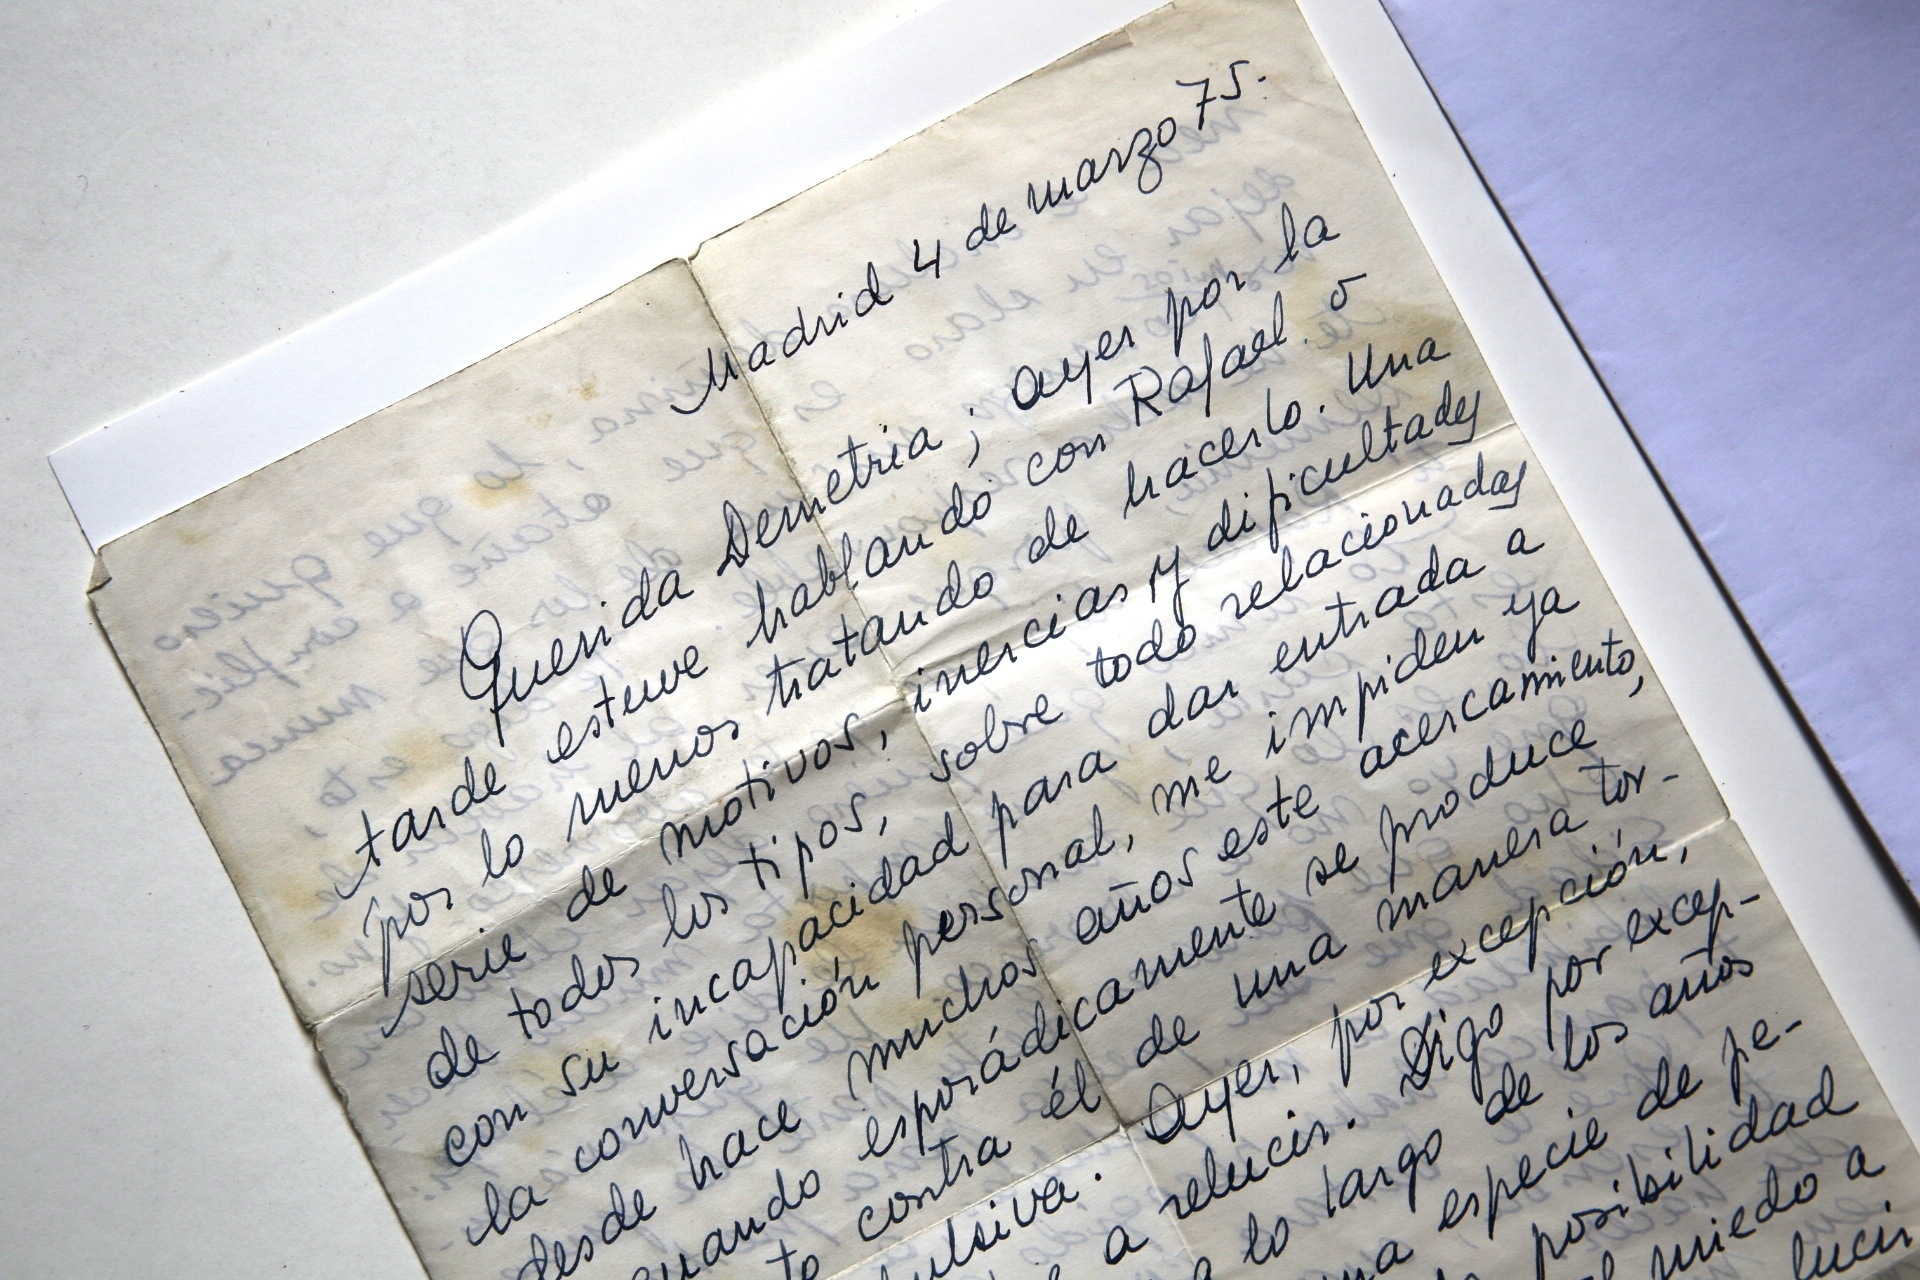 Madrid 4 de marzo 75.
Querida Demetria; ayer por la
tarde estuve hablando con Rafael o
por lo menos tratando de hacerlo. Una
serie de motivos, inercias y dificultades
de todos los tipos, sobre todo relacionadas
con su incapacidad para dar entrada a
la conversación personal, me impiden ya
desde hace muchos años este acercamiento,
cuando esporádicamente se produce,
contra él de una manera tor-
pulsiva. Ayer, por excepción,
a relucir. Digo por excep-
a lo largo de los años
una especie de pe-
posibilidad
el miedo a
lucir